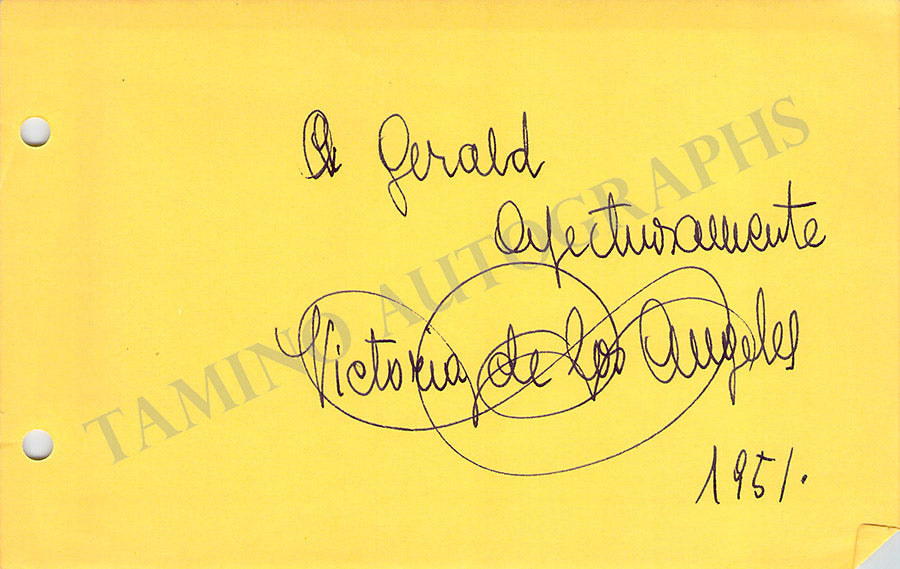 A Gerald
Afectuosamente
Victoria de los Angeles
1951.
TAMINO AUTOGRAPHS